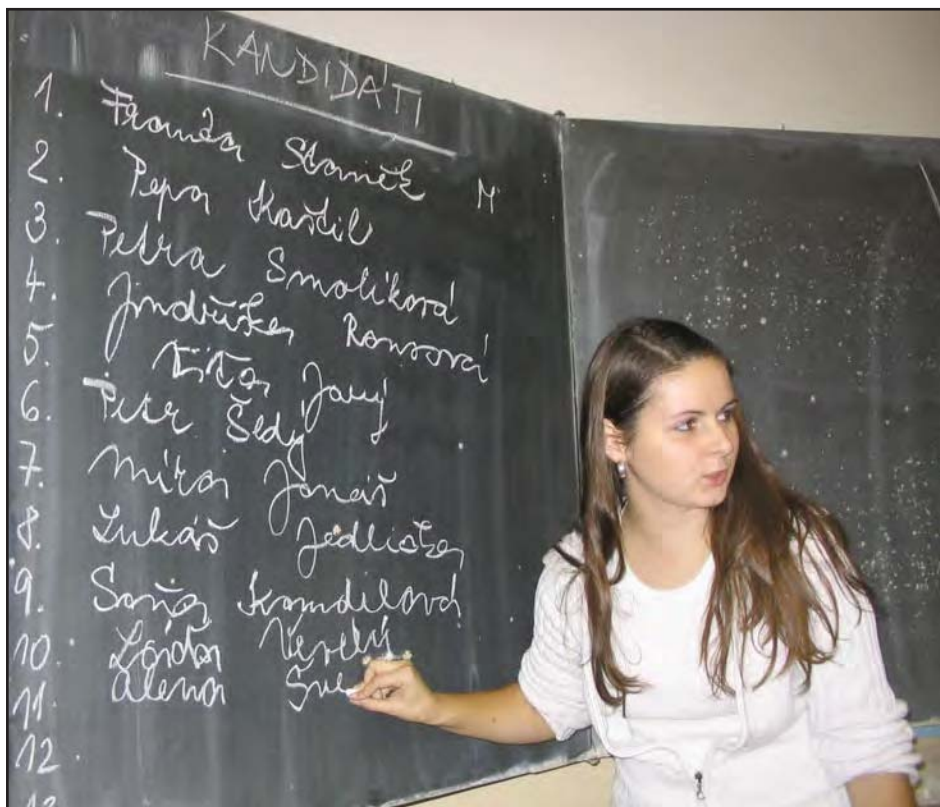 KANDIDÁTI
1. Franta Staněk M
2. Pepa Kaščil
3. Petra Smolíková
4. Jindřiška Rousová
5. Jarý
6. Petr Šedý
7. Míra Jonáš
8. Lukáš Jedlička
9. Soňa
10. Láďa Veselý
11. Alena Sve
12.
13